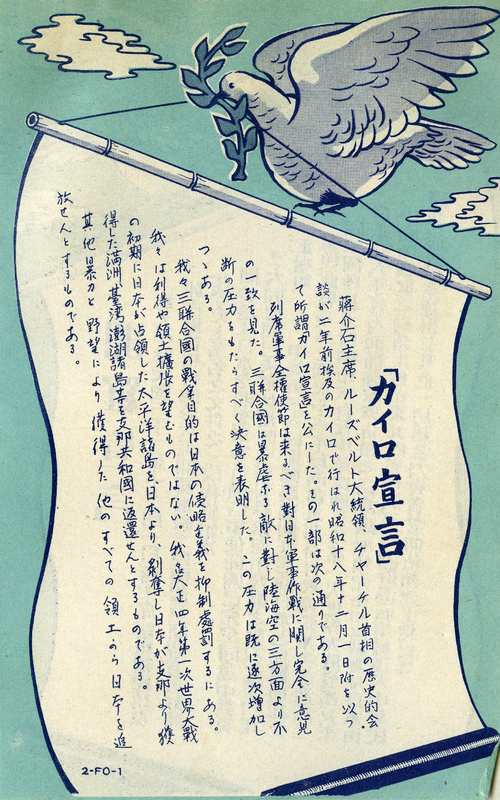 「カイロ宣言」
蔣介石主席、ルーズベルト大統領、チャーチル首相の歴史的会
談が二年前埃及のカイロで行はれ昭和十八年十二月一日附を以つ
て所謂カイロ宣言を公にした。その一部は次の通りである。
列席軍事全權使節は来るべき對日本軍事作戰に関し完全に意見
の一致を見た。三聯合國は暴虐なる敵に對し陸海空の三方面より不
断の圧力をもたらすべく決意を表明した。この圧力は既に逐次増加し
つゝある。
我々三聯合國の戰争目的は日本の侵略主義を抑制處罰するにある。
我々は利得や領土擴張を望むものではない。我々は大正四年第一次世界大戰
の初期に日本が占領した太平洋諸島を、日本より、剝奪し日本が支那より獲
得した満洲、臺湾、澎湖諸島等を支那共和國に返還せんとするものである。
其他暴力と野望により獲得した他のすべての領土から日本を追
放せんとするものである。
2-FO-1